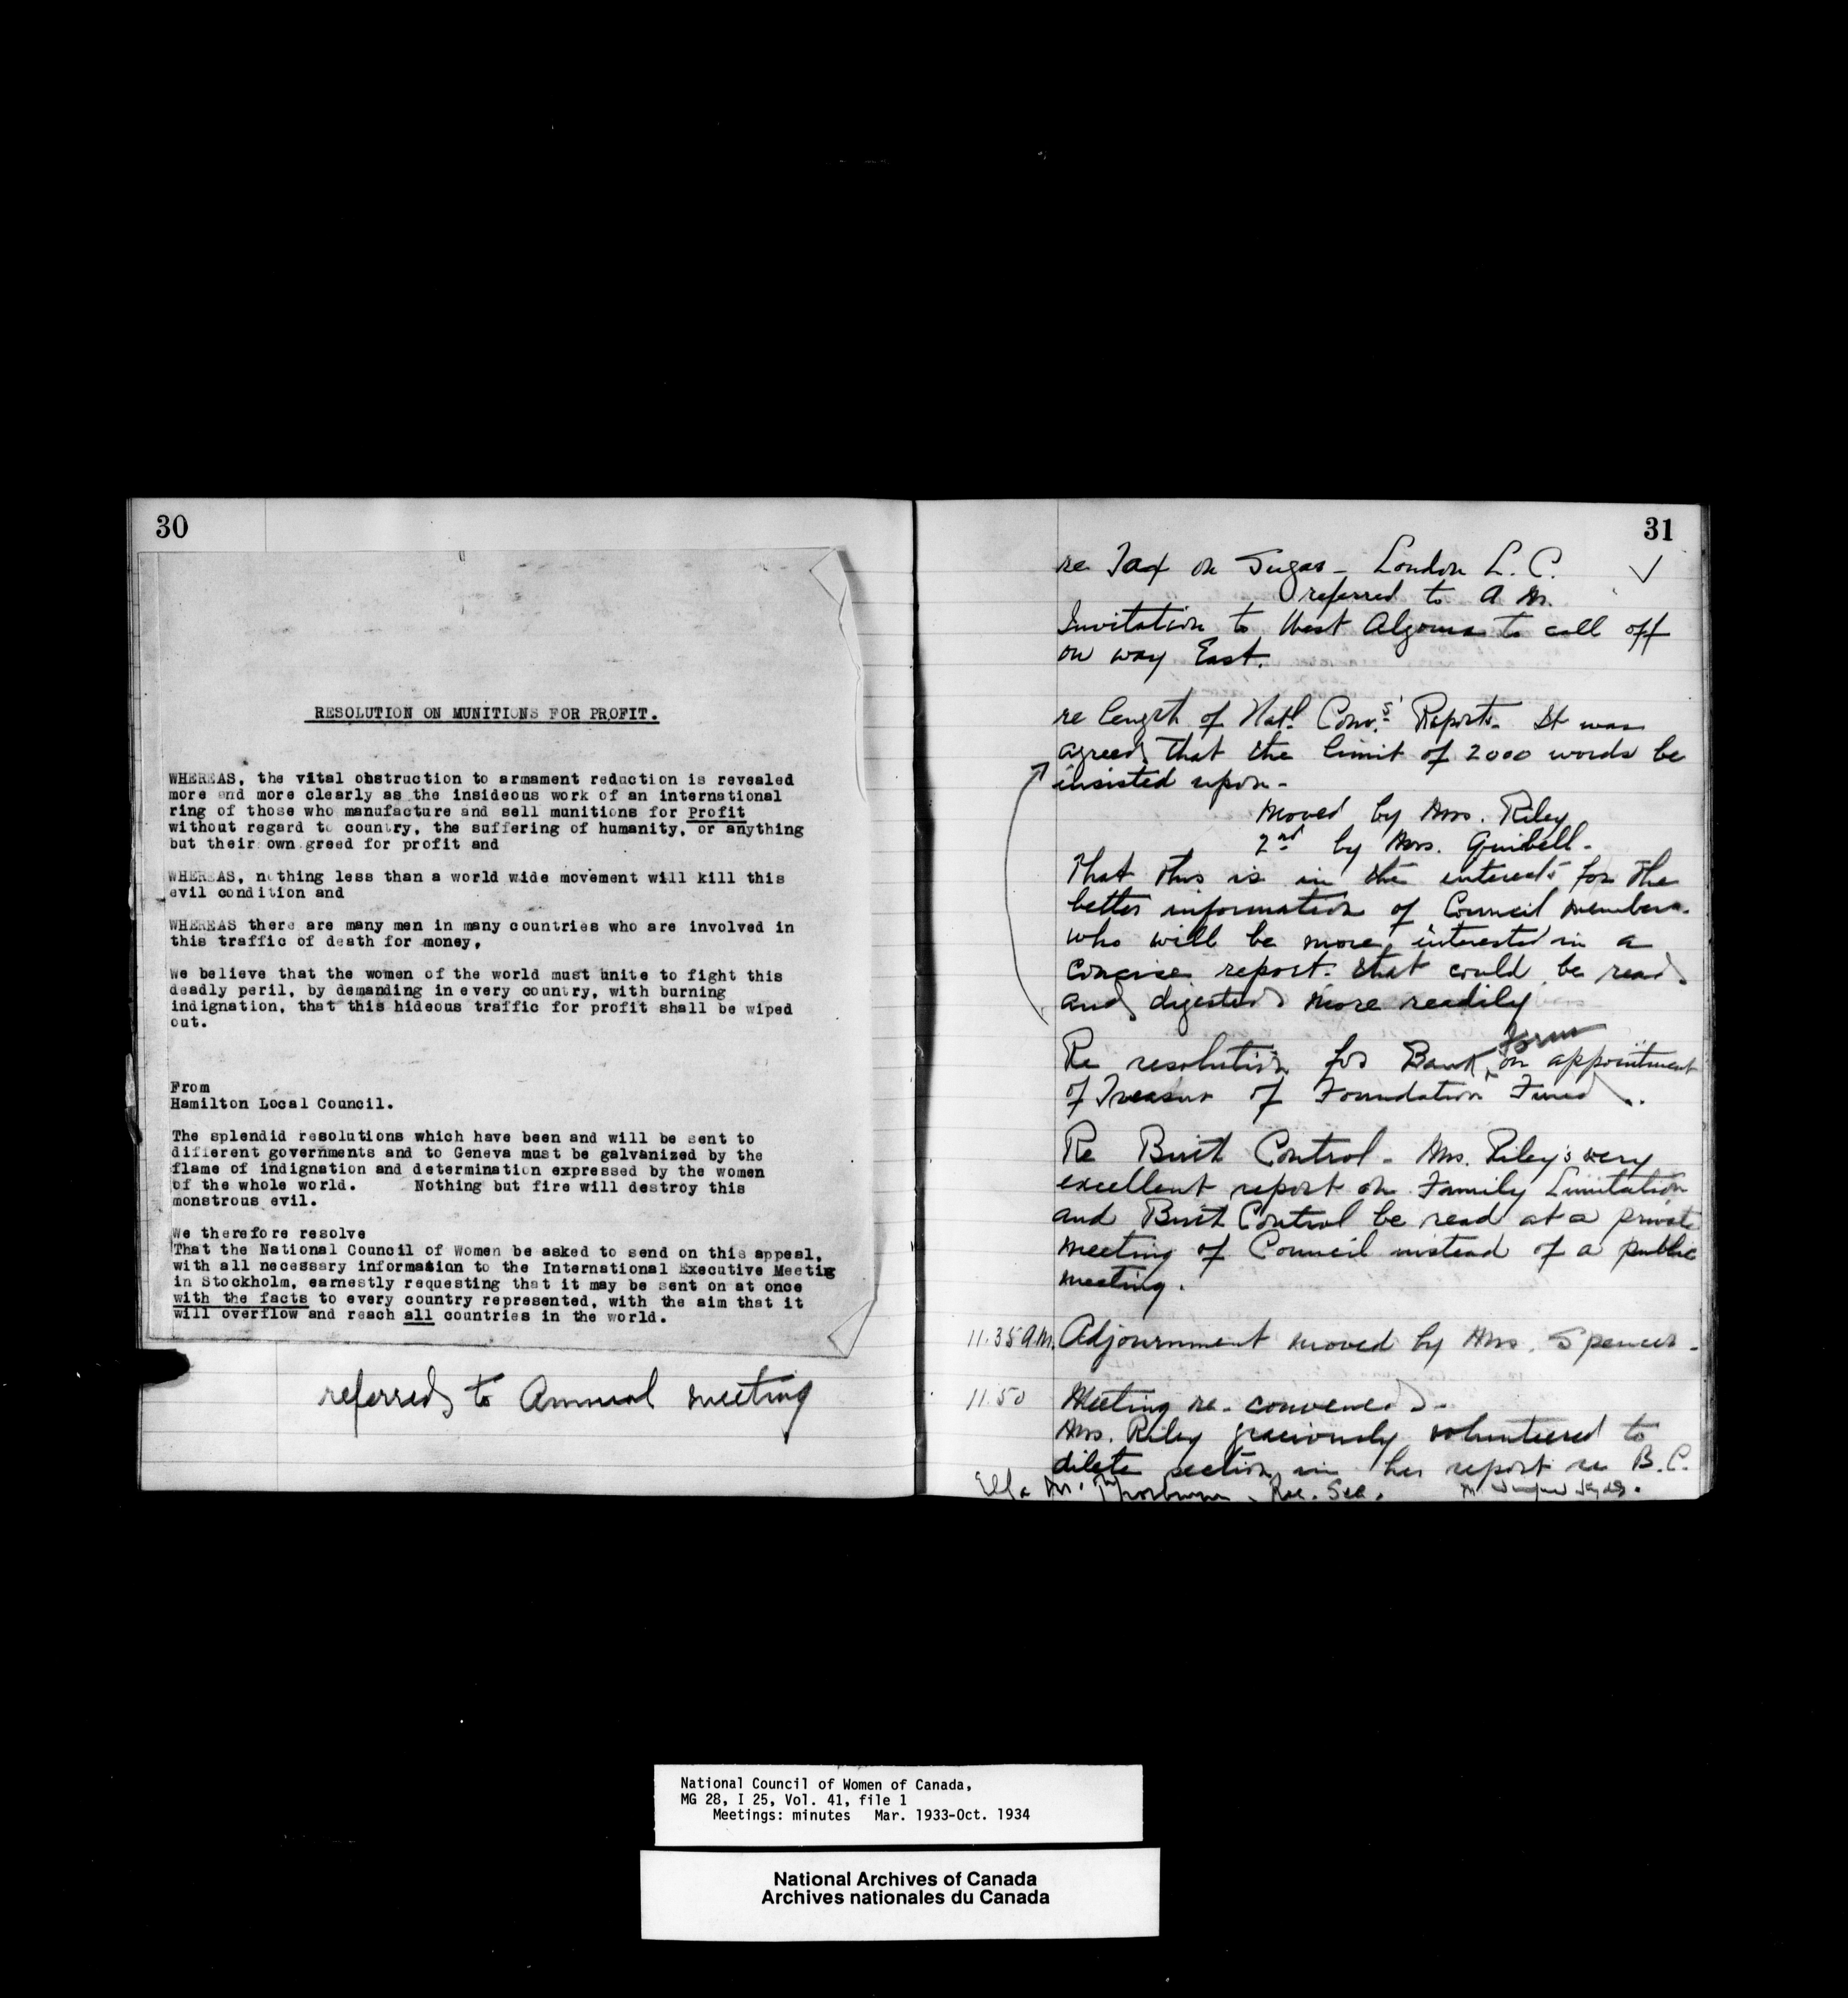 30
RESOLUTION ON MUNITIONS FOR PROFIT.
WHEREAS, the vital obstruction to armament reduction is revealed
more and more clearly as the insideous work of an international
ring of those who manufacture and sell munitions for Profit
without regard to country, the suffering of humanity, or anything
but their own greed for profit and
WHEREAS, nothing less than a world wide movement will kill this
evil condition and
WHEREAS there are many men in many countries who are involved in
this traffic of death for money,
We believe that the women of the world must unite to fight this
deadly peril, by demanding in every country, with burning
indignation, that this hideous traffic for profit shall be wiped
out.
From
Hamilton Local Council.
The splendid resolutions which have been and will be sent to
different governments and to Geneva must be galvanized by the
flame of indignation and determination expressed by the women
of the whole world. Nothing but fire will destroy this
monstrous evil.
We therefore resolve
That the National Council of Women be asked to send on this appeal,
with all necessary information to the International Executive Meetig
in Stockholm, earnestly requesting that it may be sent on at once
with the facts to every country represented, with the aim that it
will overflow and reach all countries in the world.
referred to Annual meeting
31
re Tax on Sugar - London L. C. ✓
referred to A M.
Invitation to West Algoma to call off
on way East.
re length of Natl. Conv.s' Reports. It was
agreed that the limit of 2000 words be
insisted upon -
Moved by Mrs. Riley
2nd by Mrs. Gimbell -
That this is in the interests for the
better information of Council members.
who will be more interested in a
concise report. that could be read
and digested more readily
Re resolution for Bank form on appointment
of Treasur of Foundation Fund.
Re Birth Control - Mrs. Riley's very
excellent report on Family Limitation
and Birth Control be read at a private
meeting of Council instead of a public
meeting.
11.35 A.M. Adjournment moved by Mrs. Spencer -
11.50 Meeting re-convened -
Mrs. Riley graciously volunteered to
dilete section in her report re B.C.
Ella M. Thorburn, Rec. Sec.
National Council of Women of Canada,
MG 28, I 25, Vol. 41, file 1
Meetings: minutes Mar. 1933-Oct. 1934
National Archives of Canada
Archives nationales du Canada